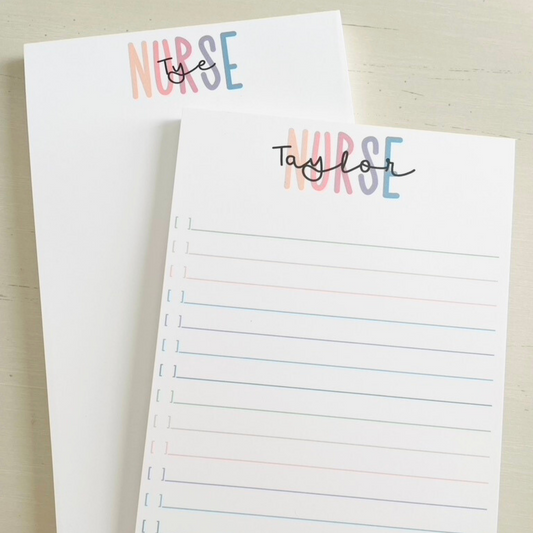 NURSE
Tye
NURSE
Taylor
[ ]
[ ]
[ ]
[ ]
[ ]
[ ]
[ ]
[ ]
[ ]
[ ]
[ ]
[ ]
[ ]